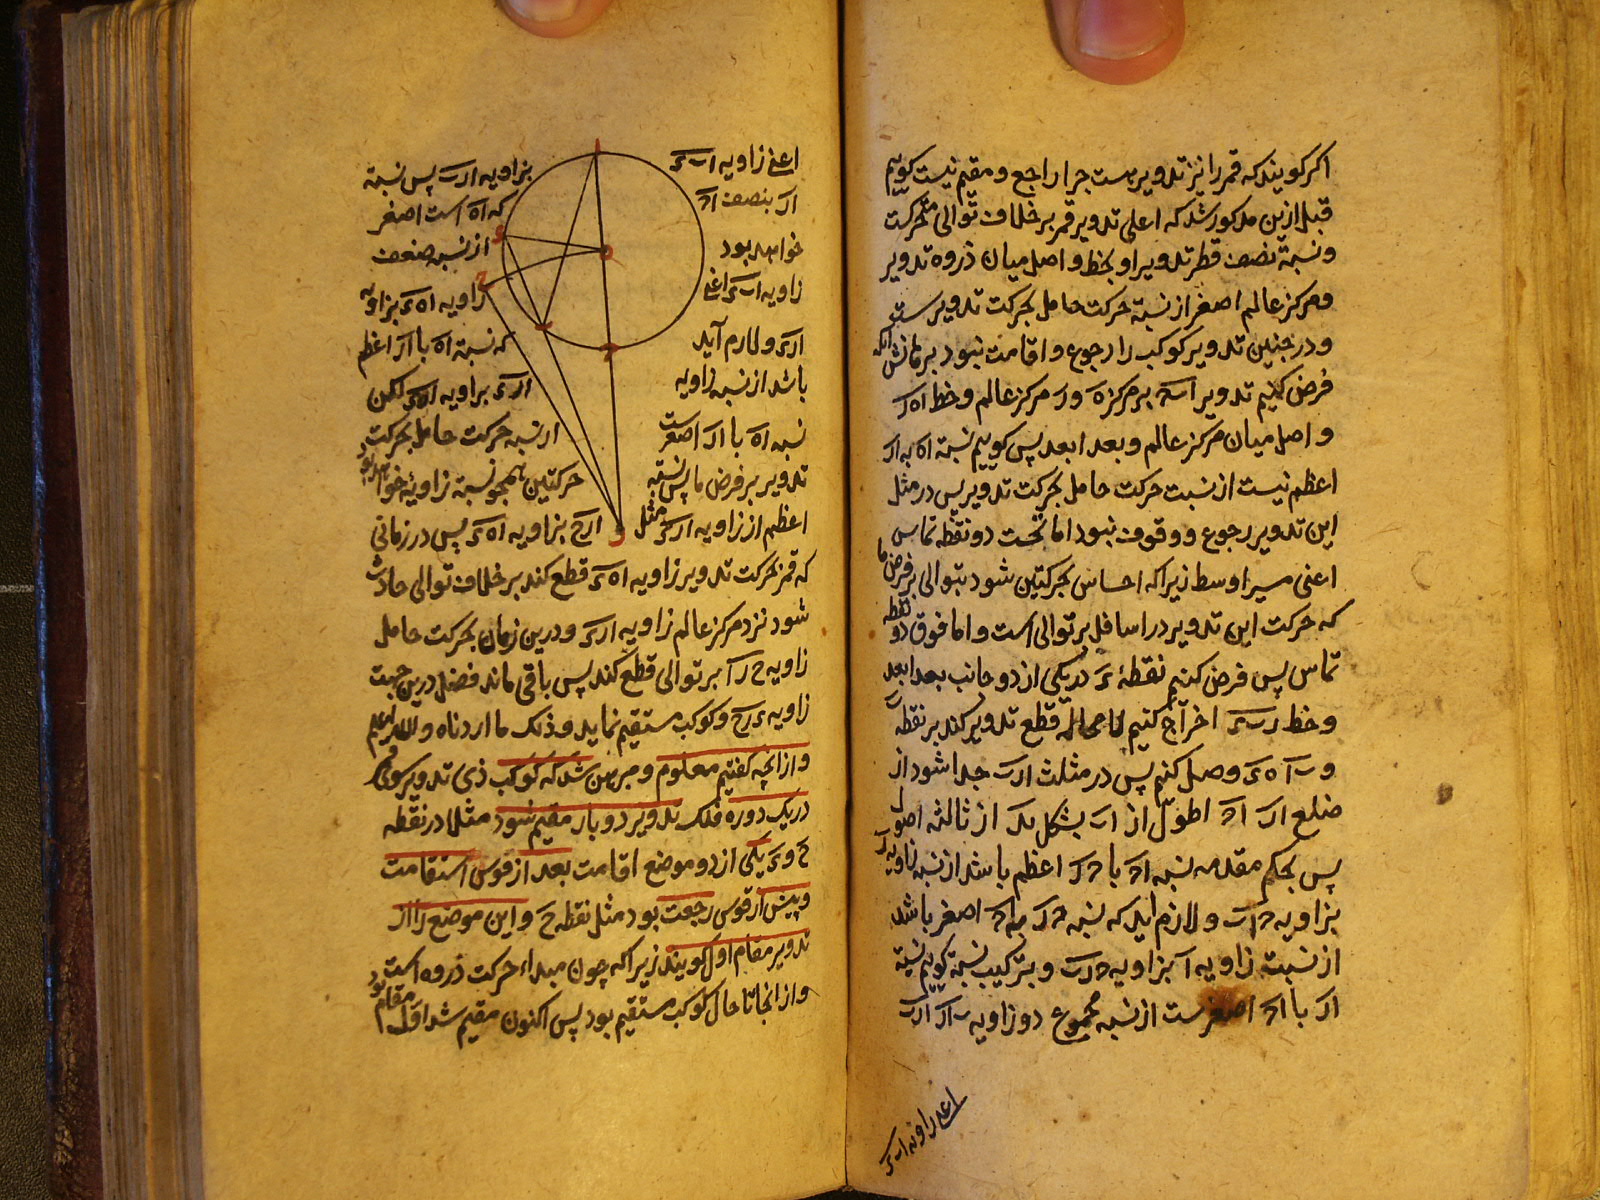 اکر کویند که قمر را نیز تدویر هست چرا راجع و مقیم نیست کوییم
قبل ازین مذکور شد که اعلی تدویر قمر بر خلاف توالی متحرکت
و نسبة نصف قطر تدویر او بخط واصل میان ذروه تدویر
و مرکز عالم اصغر از نسبة حرکت حامل بحرکت تدویرست
و در چنین تدویر کوکب را رجوع و اقامت نبود برهانش آنکه
فرض کنیم تدویر اب بر مرکز ه و ر مرکز عالم و خط اه ر
واصل میان مرکز عالم و بعد ابعد پس کوییم نسبة اه به ار
اعظم نیست از نسبت حرکت حامل بحرکت تدویر پس در مثل
این تدویر رجوع و وقوف نبود اما تحت دو نقطه تماس
اعنی مسیر اوسط زیرا که احساس بحرکتین شود بتوالی بر فرض ما
که حرکت این تدویر در اسافل بر توالی است و اما فوق دو نقطه
تماس پس فرض کنیم نقطهٔ ء در یکی از دو جانب بعد ابعد
و خط ر ب ء اخراج کنیم لامحاله قطع تدویر کند بر نقطه ب
و ب ا ه ء وصل کنیم پس در مثلث ارب جدا شود از
ضلع ار اح اطول از اب بشکل بد از ثالثه اصول
پس بحکم مقدمه نسبه اح با حر اعظم باشد از نسبه زاویه ر
بزاویه ح ر ب و لازم اید که نسبه حر با اح اصغر باشد
از نسبت زاویه ا بزاویه ح ر ب و بترکیب نسبة کوییم نسبة
ار با اح اصغرست از نسبه مجموع دو زاویه ب ار ارب
اعنی زاویه اب ء
اعنی زاویه اب ء بزاویه ارب پس نسبة
ار بنصف اح که اه است اصغر
خواهد بود از نسبه ضعف
زاویه اب ء اعنی زاویه اه ء بزاویه
ار ء و لازم آید که نسبة اه با ار اعظم
باشد از نسبه زاویه ار ء بزاویه اه ء لکن
نسبه اه با ار اصغرست از نسبه حرکت حامل بحرکت
تدویر بر فرض ما پس نسبة حرکتین همچو نسبة زاویهٔ خواهد بود
اعظم از زاویه ار ء مثل ارح بزاویه اه ء پس در زمانی
که قمر بحرکت تدویر زاویه اه ء قطع کند بر خلاف توالی حادث
شود نزد مرکز عالم زاویه ار ء و درین زمان بحرکت حامل
زاویه ح ر ا بر توالی قطع کند پس باقی ماند فضل درین جهت
زاویه ء ر ح و کوکب مستقیم نماید و ذلک ما اردناه و الله اعلم
و از انچه کفتیم معلوم و مبرهن شد که کوکب ذی تدویر سوی قمر
در یک دوره فلک تدویر دو بار مقیم شود مثلا در نقطه
ح و ء یکی از دو موضع اقامت بعد از قوس استقامت
و پیش از قوس رجعت بود مثل نقطه ح و این موضع را از
تدویر مقام اول کویند زیرا که چون مبداء حرکت ذروه است
و از انجا تا حال کوکب مستقیم بود پس اکنون مقیم شد اول مقام بود